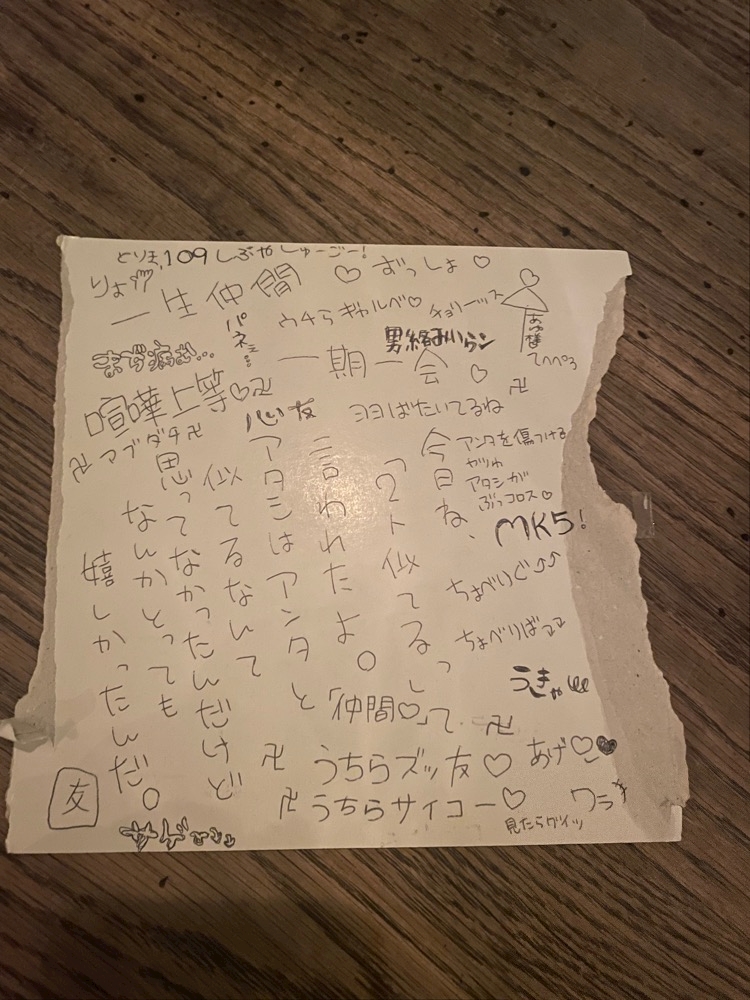 とりま,109しぶやしゅーごー!
りょ
一生仲間♡ずっしょ♡
ウチらギャルベ♡
チョリーッス
パネェ…
まぢ病む…
男絡みいらン
一期一会♡
てへぺろ
喧嘩上等♡卍
心友
ヨヨばたいてるね
卍マブダチ卍
卍
アンタを傷つける
ヤツわ
アタシが
ぶっコロス♡
MK5!
今日ね、
「2ト似てるっして
言われたよ。
アタシはアンタと
似てるなんて
思ってなかったんだけど
なんかとっても
嬉しかったんだ。
ちょべりぐ⤴⤴
ちょべりば
うきゃ
「仲間♡」
卍
卍うちらズッ友♡
あげ♡♥
卍うちらサイコー♡
ワラ
見たらダイソ
友
サゲ